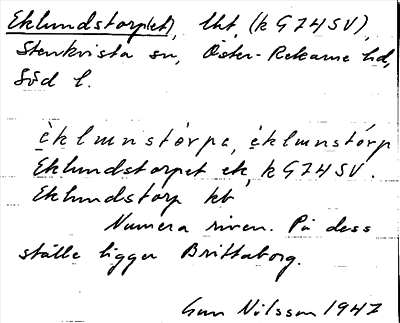 Eklundstorp(et), lht, (k G74SV),
Stenkvista sn, Öster-Rekarne hd,
Söd l.
èklɯnstórpe, èklɯnstórp
Eklundstorpet ek, k G74 SV.
Eklundstorp kb
Numera riven. På dess
ställe ligger Brittaborg.
Gun Nilsson 1947